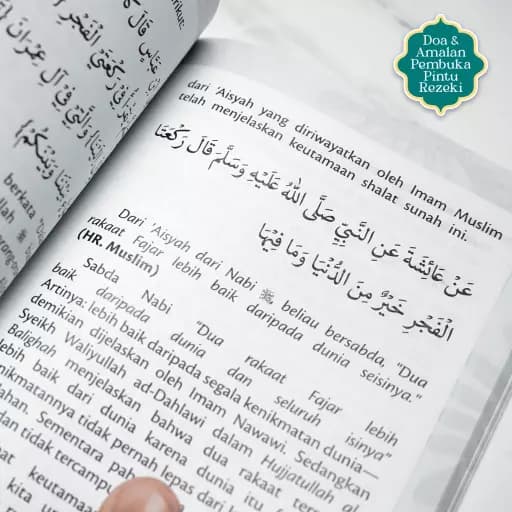 Doa &
Amalan
Pembuka
Pintu
Rezeki
erikut:
dari 'Aisyah yang diriwayatkan oleh Imam Muslim
telah menjelaskan keutamaan shalat sunah ini.
عَنْ عَائِشَةَ عَنِ النَّبِيِّ صَلَّى اللهُ عَلَيْهِ وَسَلَّمَ قَالَ رَكْعَتَا
الْفَجْرِ خَيْرٌ مِنَ الدُّنْيَا وَمَا فِيْهَا
Dari 'Aisyah dari Nabi ﷺ beliau bersabda, "Dua
rakaat Fajar lebih baik daripada dunia seisinya."
(HR. Muslim)
Sabda Nabi "Dua rakaat Fajar lebih
baik daripada dunia dan seluruh isinya"
Artinya: lebih baik daripada segala kenikmatan dunia—
demikian dijelaskan oleh Imam Nawawi. Sedangkan
Syeikh Waliyullah ad-Dahlawi dalam Hujjatullah al
Balighah menjelaskan bahwa dua rakaat
lebih baik dari dunia karena dunia itu
nikmatannya tidak pernah lepas dari
Sementara
dan tidak
keutamaa
kita
berkata "Di